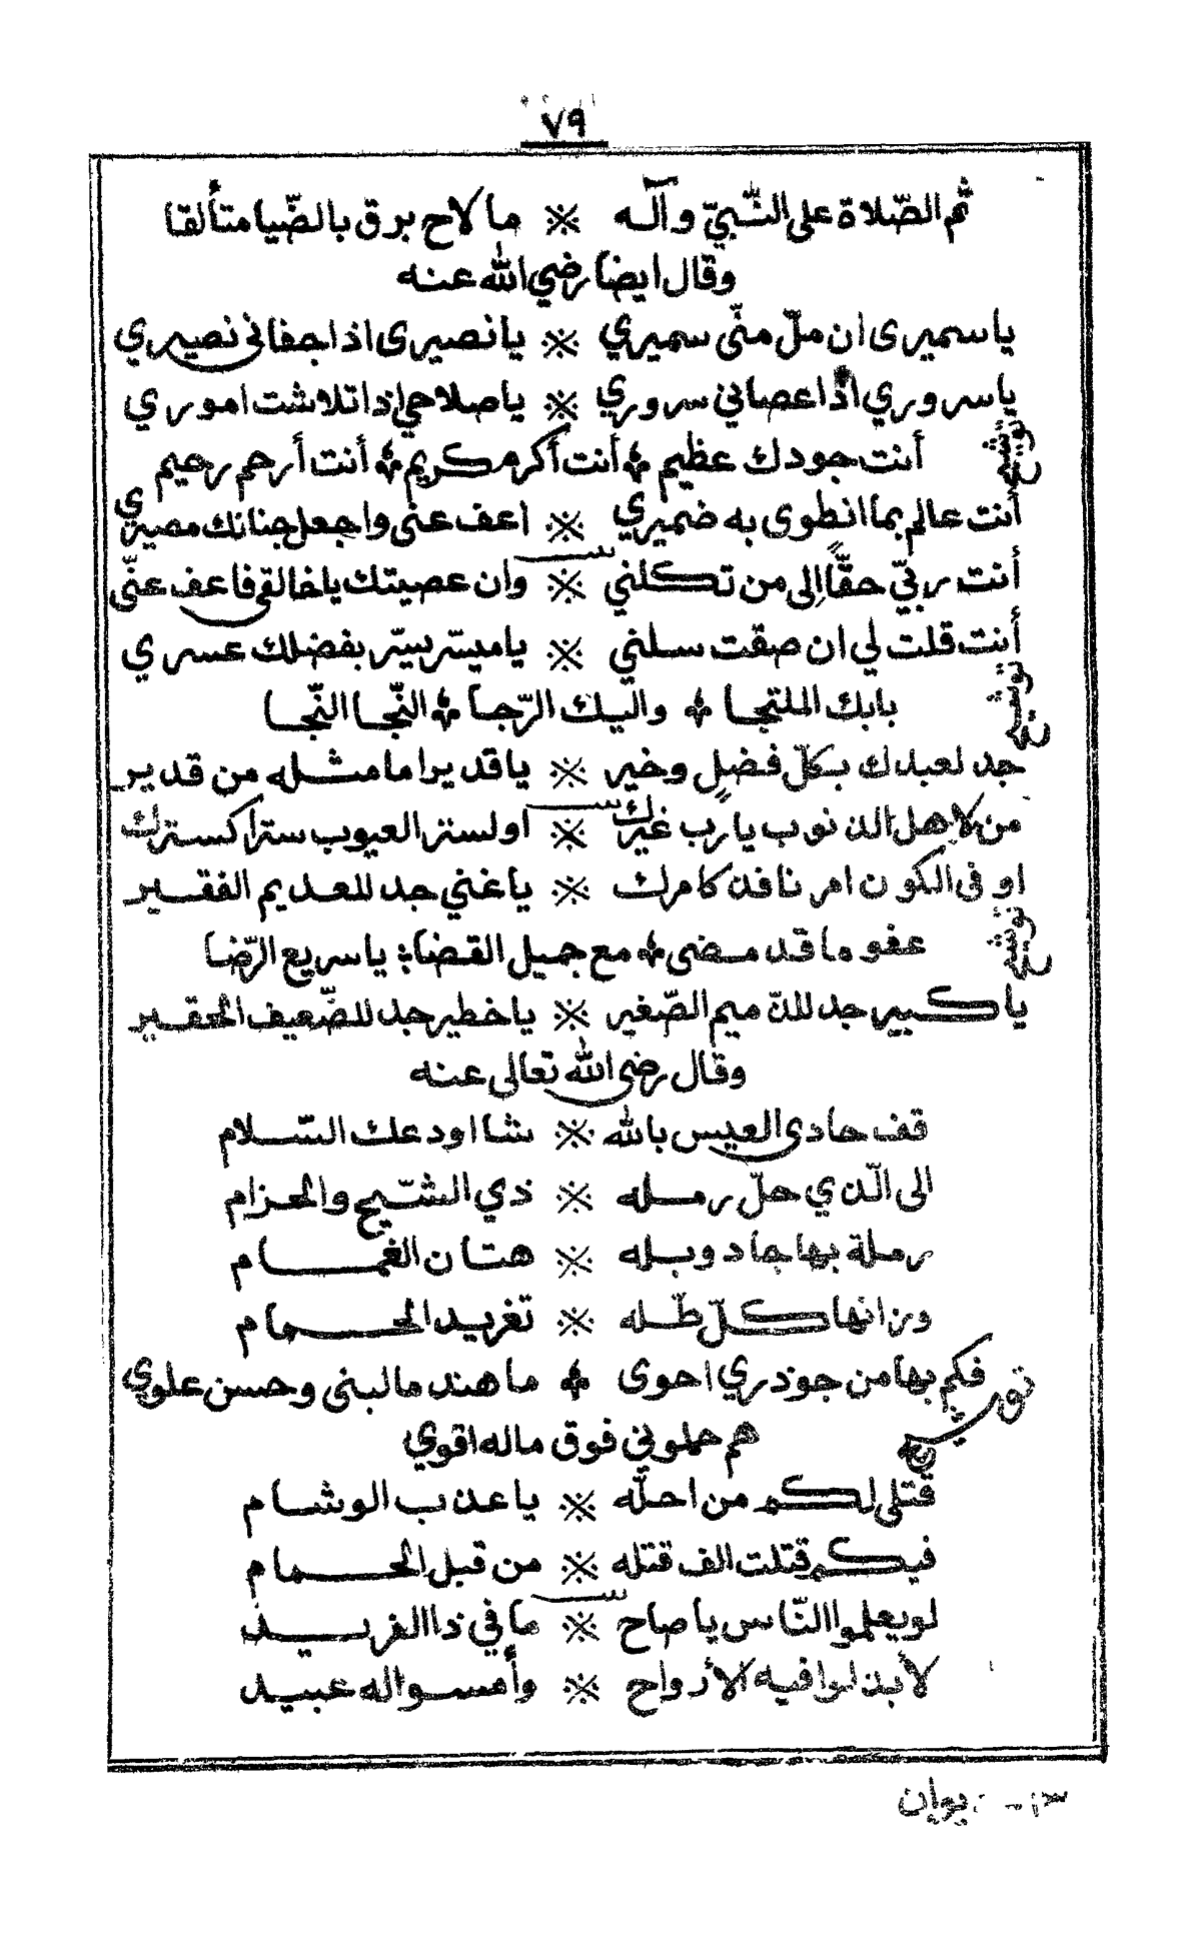 ٧٩
ثم الصّلاة على النّبيّ وآله ※ ما لاح برق بالضّيا متألقا
وقال ايضا رضي الله عنه
يا سميرى ان ملّ منّى سميري ※ يا نصيرى اذا جفانى نصيري
يا سروري اذا عصاني سروري ※ يا صلاحي اذا تلاشت اموري
توشيح
أنت جودك عظيم ﴿ أنت أكرم كريم ﴿ أنت أرحم رحيم
أنت عالم بما انطوى به ضميري ※ اعف عنى واجعل جنانك مصيري
أنت ربّي حقًّا إلى من تكلني ※ وان عصيتك يا خالقي فاعف عنّى
أنت قلت لي ان صقت سلني ※ يا ميسّر يسّر بفضلك عسري
توشيح
بابك الملتجا ﴿ واليك الرّجا ﴿ النّجا النّجا
جد لعبدك بكلّ فضل وخير ※ يا قديرا ما مثله من قدير
من لاهل الذنوب يا رب غيرك ※ اولستر العيوب سترا كسترك
او فى الكون امر نافذ كامرك ※ يا غني جد للعديم الفقير
توشيح
عفو ما قد مضى ﴿ مع جميل القضا ﴿ يا سريع الرّضا
يا كبير جد للذّميم الصّغير ※ يا خطير جد للضّعيف الحقير
وقال رضى الله تعالى عنه
قف حادى العيس بالله ※ نشا اودعك السّلام
الى الّذي حلّ رمله ※ ذي الشّيح والحزام
رملة بها جاد وبله ※ هتان الغمام
وزانها كلّ طّله ※ تغريد الحمام
توشيح
فكم بها من جوذري احوى ﴿ ما هند ما لبنى وحسن علوي
هم حملوني فوق ماله اقوي
قتلى لكم من احلّه ※ يا عذب الوشام
فيكم قتلت الف قتله ※ من قبل الحمام
لو يعلموا النّاس يا صاح ※ ما في ذا الفريد
لأبذلوا فيه الأرواح ※ وأمسوا له عبيد
١٣ - ديوان